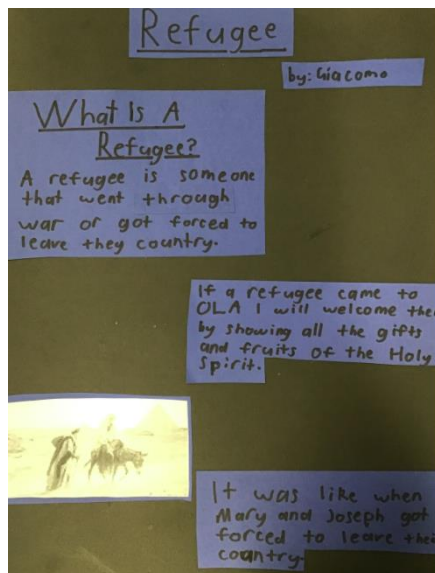 Refugee
by: Giacomo
What Is A
Refugee?
A refugee is someone
that went through
war or got forced to
leave they country.
If a refugee came to
OLA I will welcome the
by showing all the gifts
and fruits of the Holy
Spirit.
It was like when
Mary and Joseph got
forced to leave thei
country.